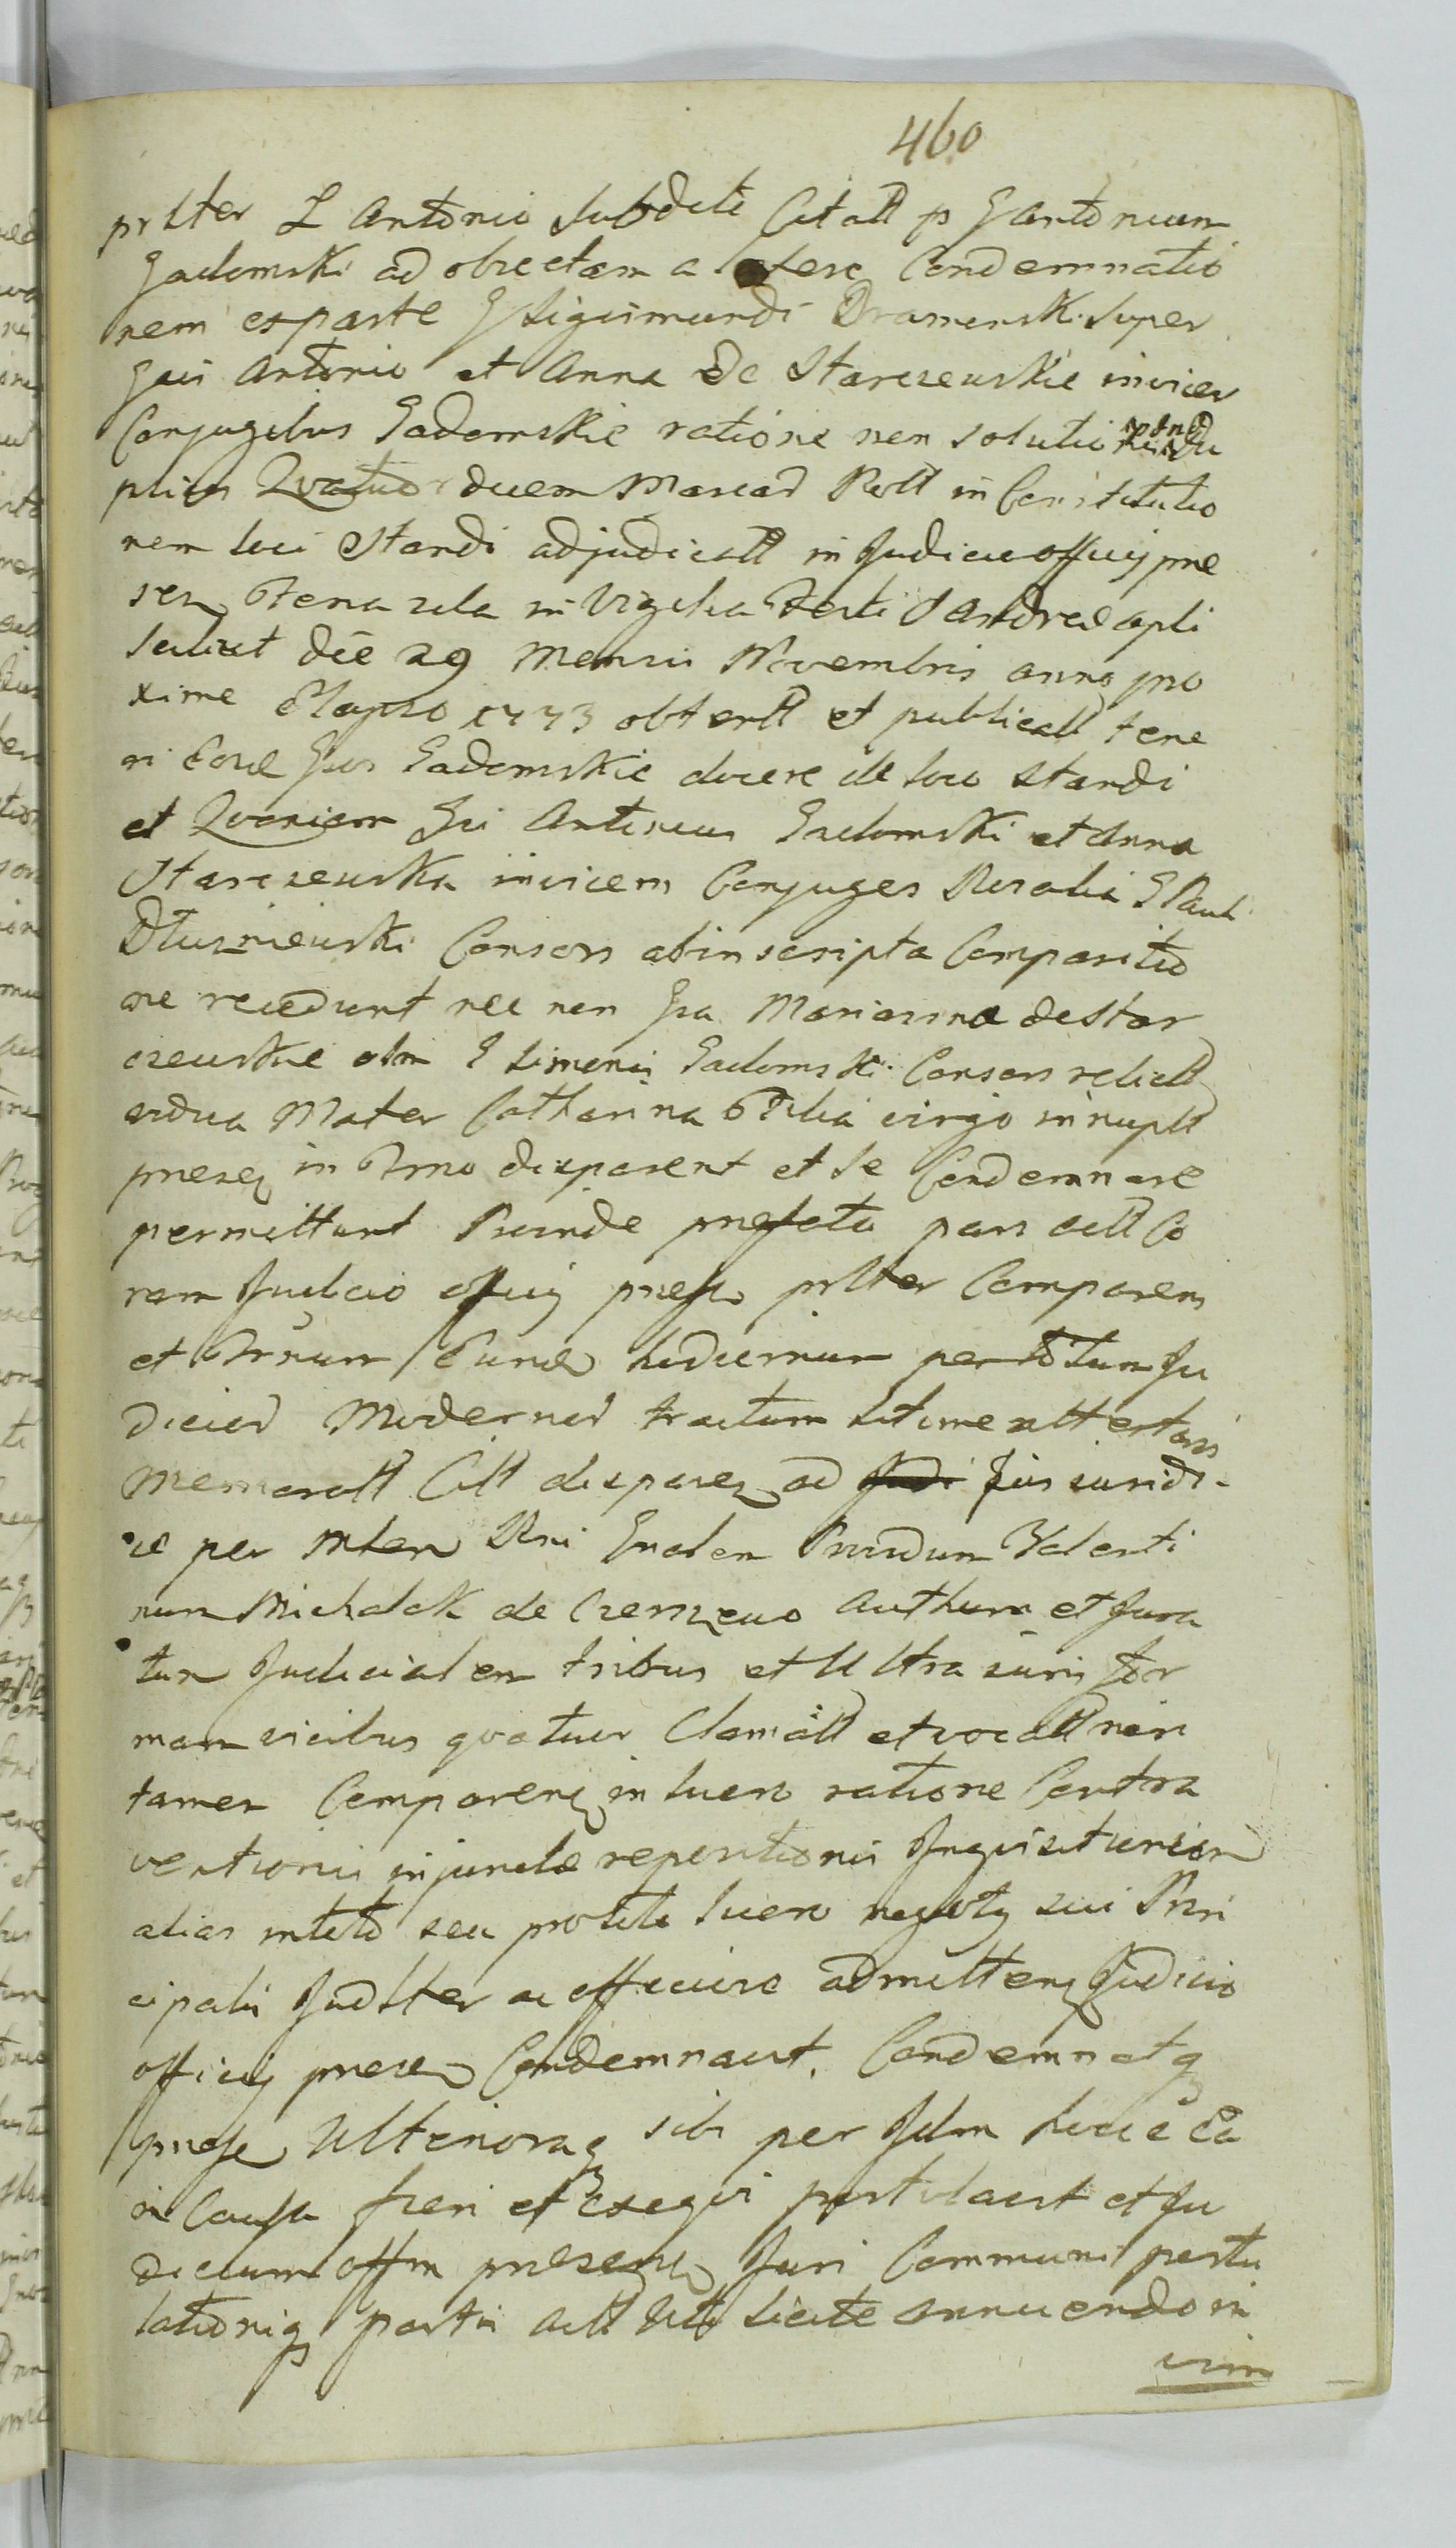 460
prlter L Antonio Subditi Citatt p G Antonium
Gadomski ad obiectam a latere Condemnatio
nem ex parte G Sigismundi Dramensk. Super
Gsis Antonio et Anna de Starczewskie invicem
Conjugibus Gadomskie ratione non solutii
plicis Qvatuordecem Marcar Poll in Constitutio
nem loci Standi adjudicatt in Judicio officij pre
sen Feria 2da in Vigilia Festi S Andreæ apli
scilicet die 29 Mensis Novembris anno pro
xime Elapso 1773 obtentt et publicatt tene
ri Gsos Gadomskie docere de loco Standi
et Qvoniam Gsi Antonius Gadomski et Anna
Starczewska invicem Conjuges Rosalia G Pauli
Dłuzniewski Consors ab inscripta Comparitio
ne recedunt nec non Gsa Marianna de Star
czewskie olim G Simonis Gadomski Consors relictt
vidua Mater Catharina Filia virgo innuptt
presen in Trno disparent et se Condemnare
permittunt Proinde prefata pars actt Co
ram Judicio officij prese prltter Comparens
et Trnum Eund hodiernum per totum Ju
dicior Modernor tractum attestans
Memoratt Citt disparen ad Jus iuridi-
ce per Mlem Rni Gnalem Providum Valenti
num Michalak de authum et Jura
tum Judicialem tribus et Ultra iuris for
mam vicibus qvatuor Clamatt et vocatt non
tamen Comparen in lucro ratione Contra
ventionis injunctæ repositionis Inqvisiturion
alias intto seu protitti lucro negotij sui Prin
cipalis Judlter ac officiose admitten Judicio
officij presen Condemnavit. Condemnatq
prese Ulterioraq sibi per Jdm hocce Ea
in Causa fieri et exeqvi postulavit et Ju
dicium offm presens Juri Communi postu
lationiq partis actt Uti licite annuendo in
vim